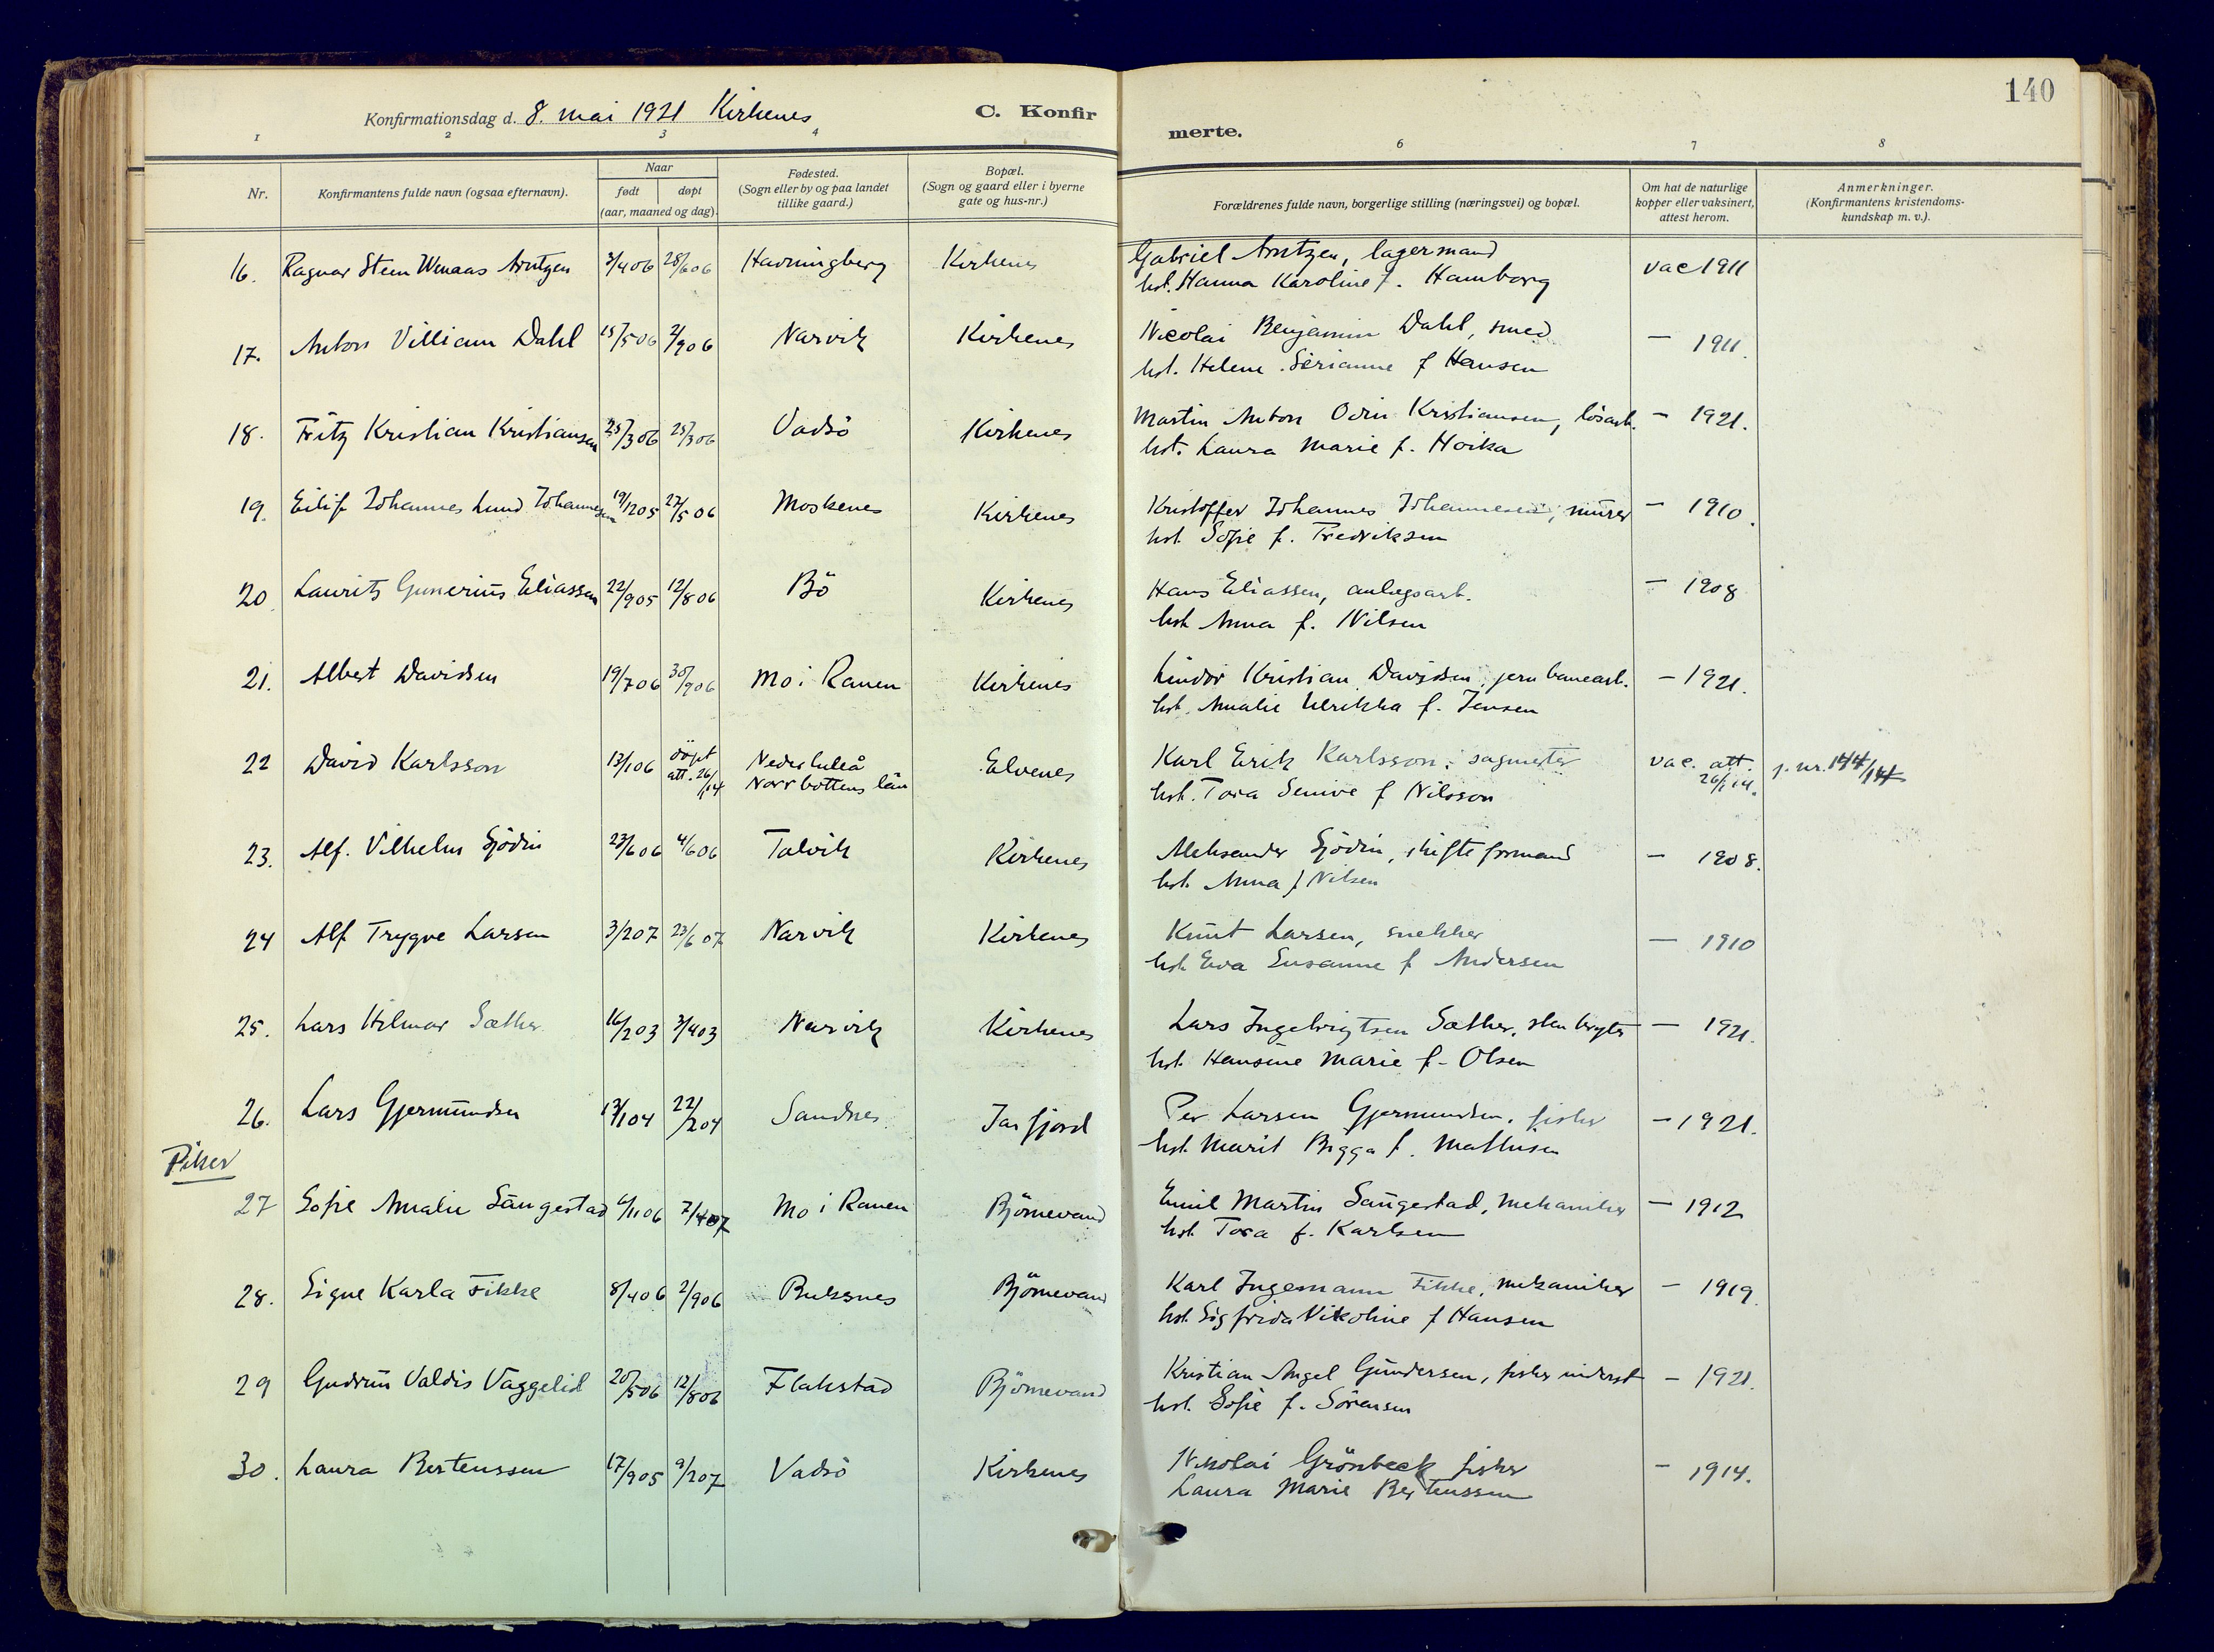 140
Konfirmationsdag d. 8. mai 1921 Kirkenes
C. Konfir
merte.
1 2 3 4 6 7 8
Nr.
Konfirmantens fulde navn (ogsaa efternavn).
Naar
født døpt
(aar, maaned og dag).
Fødested.
(Sogn eller by og paa landet
tillike gaard.)
Bopæl.
(Sogn og gaard eller i byerne
gate og hus-nr.)
Forældrenes fulde navn, borgerlige stilling (næringsvei) og bopæl.
Om hat de naturlige
kopper eller vaksinert,
attest herom.
Anmerkninger.
(Konfirmantens kristendoms-
kundskap m. v.).
16. Ragnar Steen Wenaas Arntzen 3/4 06 28/6 06 Havningberg Kirkenes Gabriel Arntzen, lagermand vac 1911
hst. Hanna Karoline f. Hamborg
17. Anton Villiam Dahl 15/5 06 2/9 06 Narvik Kirkenes Nicolai Benjamin Dahl, smed — 1911.
hst. Helene Serianne f Hansen
18. Fritz Kristian Kristiansen 25/3 06 25/3 06 Vadsö Kirkenes Martin Anton Odin Kristiansen, lösarb. — 1921.
hst. Laura Marie f. Hoika
19. Eilif Johannes Lund Johannesen 19/12 05 27/5 06 Moskenes Kirkenes Kristoffer Johannes Johannesen, murer — 1910.
hst. Sofie f. Fredriksen
20. Laurits Gunerius Eliassen 22/9 05 12/8 06 Bö Kirkenes Hans Eliassen, anlegsarb. — 1908
hst Anna f. Nilsen
21. Albert Davidsen 19/7 06 30/9 06 Mo i Ranen Kirkenes Lindor Kristian Davidsen, jernbanearb. — 1921.
hst. Amalie Ulrikka f. Jensen
22 David Karlsson 13/1 06 döpt att. 26/1 14 Nederluleå Norrbottens län Elvenes Karl Erik Karlsson, sagmester vac. att. 26/1 14. j. nr. 144/14
hst. Tora f Nilsson
23. Alf. Vilhelm Sjödin 23/6 06 4/6 06 Talvik Kirkenes Aleksander Sjödin, skifteformand — 1908.
hst. Anna f Nilsen
24 Alf Trygve Larsen 3/2 07 23/6 07 Narvik Kirkenes Knut Larsen, snekker — 1910
hst Eva Susanne f Andersen
25. Lars Hilmar Sæther 16/2 03 3/4 03 Narvik Kirkenes Lars Ingebrigtsen Sæther, stenbryter — 1921.
hst. Hansine Marie f. Olsen
26. Lars Gjermundsen 13/1 04 22/2 04 Sandnes Jarfjord Per Larsen Gjermundsen, fisker — 1921.
hst. Marit Bigga f. Mathisen
Piker
27 Sofie Amalie Saugestad 6/11 06 7/4 07 Mo i Ranen Björnevand Emil Martin Saugestad, mekaniker — 1912
hst. Tora f. Karlsen
28. Signe Karla Fikke 8/4 06 2/9 06 Buksnes Björnevand Karl Ingemann Fikke, mekaniker — 1919.
hst. Sigfrida Nikoline f Hansen
29 Gudrun Valdis Vaggelid 20/5 06 12/8 06 Flakstad Björnevand Kristian Angel Gundersen, fisker inderst — 1921.
hst. Sofie f. Sörensen
30. Laura Bertenssen 17/9 05 9/2 07 Vadsö Kirkenes Nikolai Grönbeck fisker — 1914.
Laura Marie Bertenssen